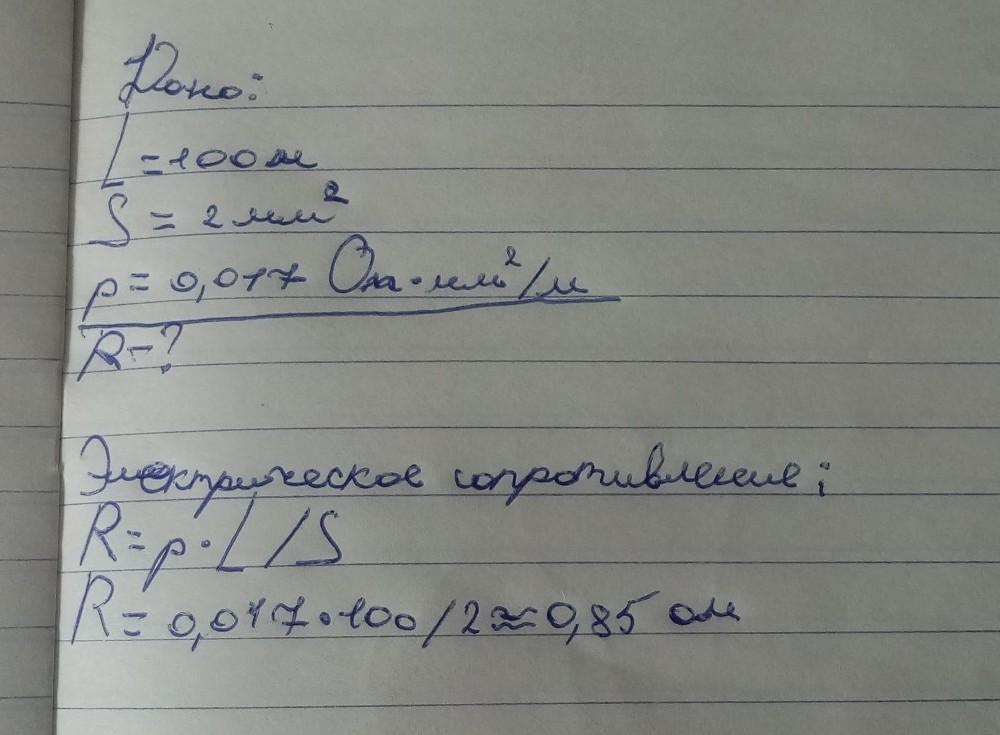 Дано:
L = 100 м
S = 2 мм²
ρ = 0,017 Ом·мм²/м
R - ?
Электрическое сопротивление:
R = ρ · L / S
R = 0,017 · 100 / 2 ≈ 0,85 ом